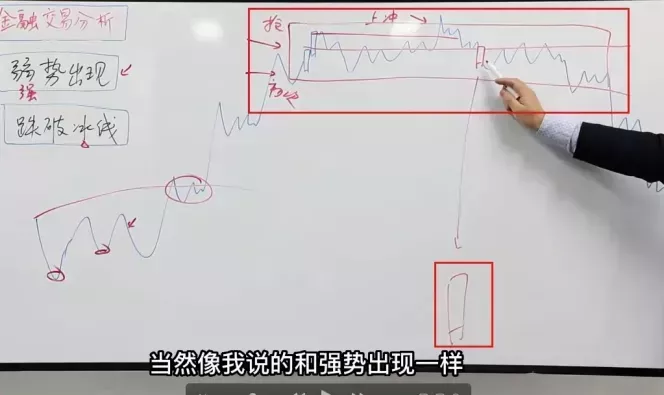 金融交易分析
抢
上冲
弱势出现
强
跌破冰线
当然像我说的和强势出现一样